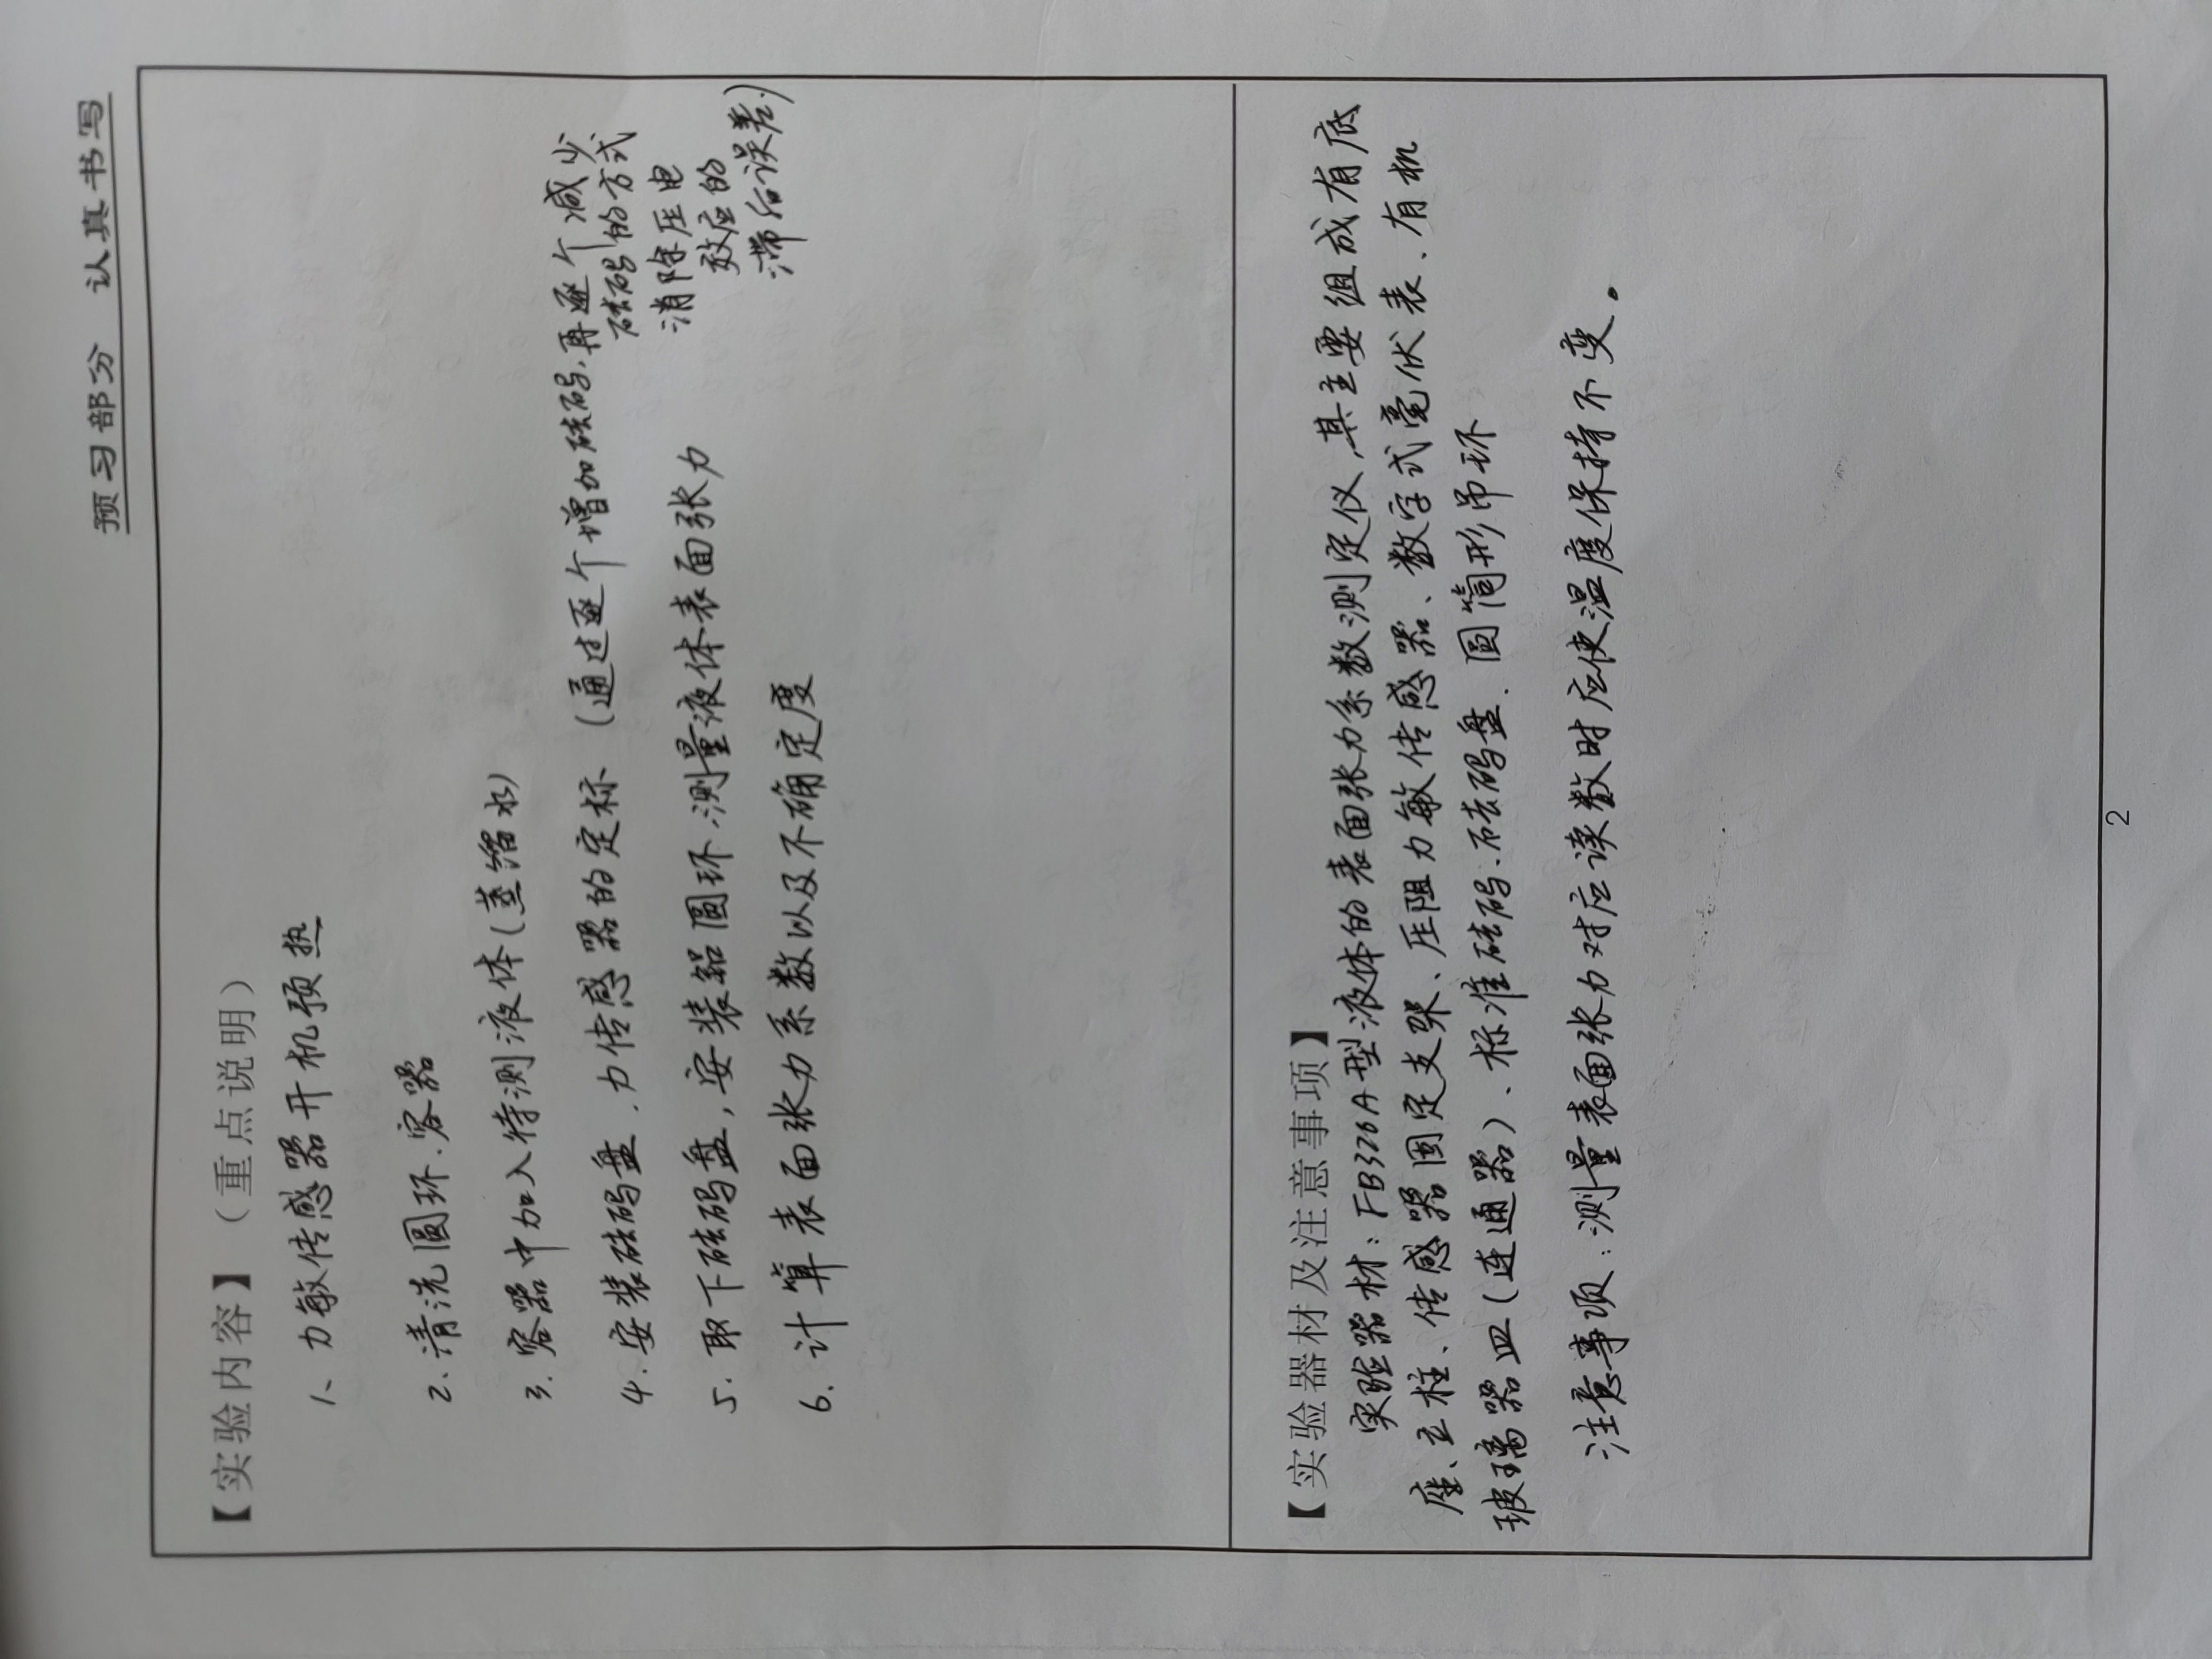 预习部分 认真书写
【实验内容】（重点说明）
1、力敏传感器开机预热
2、清洗圆环、容器
3、容器中加入待测液体（蒸馏水）
4、安装砝码盘、力传感器的定标（通过逐个增加砝码，再逐个减少
砝码的方式
消除压电
效应的
滞后误差）
5、取下砝码盘，安装铝圆环、测量液体表面张力
6、计算表面张力系数以及不确定度
【实验器材及注意事项】
实验器材：FB326A型液体的表面张力系数测定仪，其主要组成有底
座、立柱、传感器固定支架、压阻力敏传感器、数字式毫伏表、有机
玻璃器皿（连通器）、标准砝码、砝码盘、圆筒形吊环
注意事项：测量表面张力对应读数时应使温度保持不变。
2